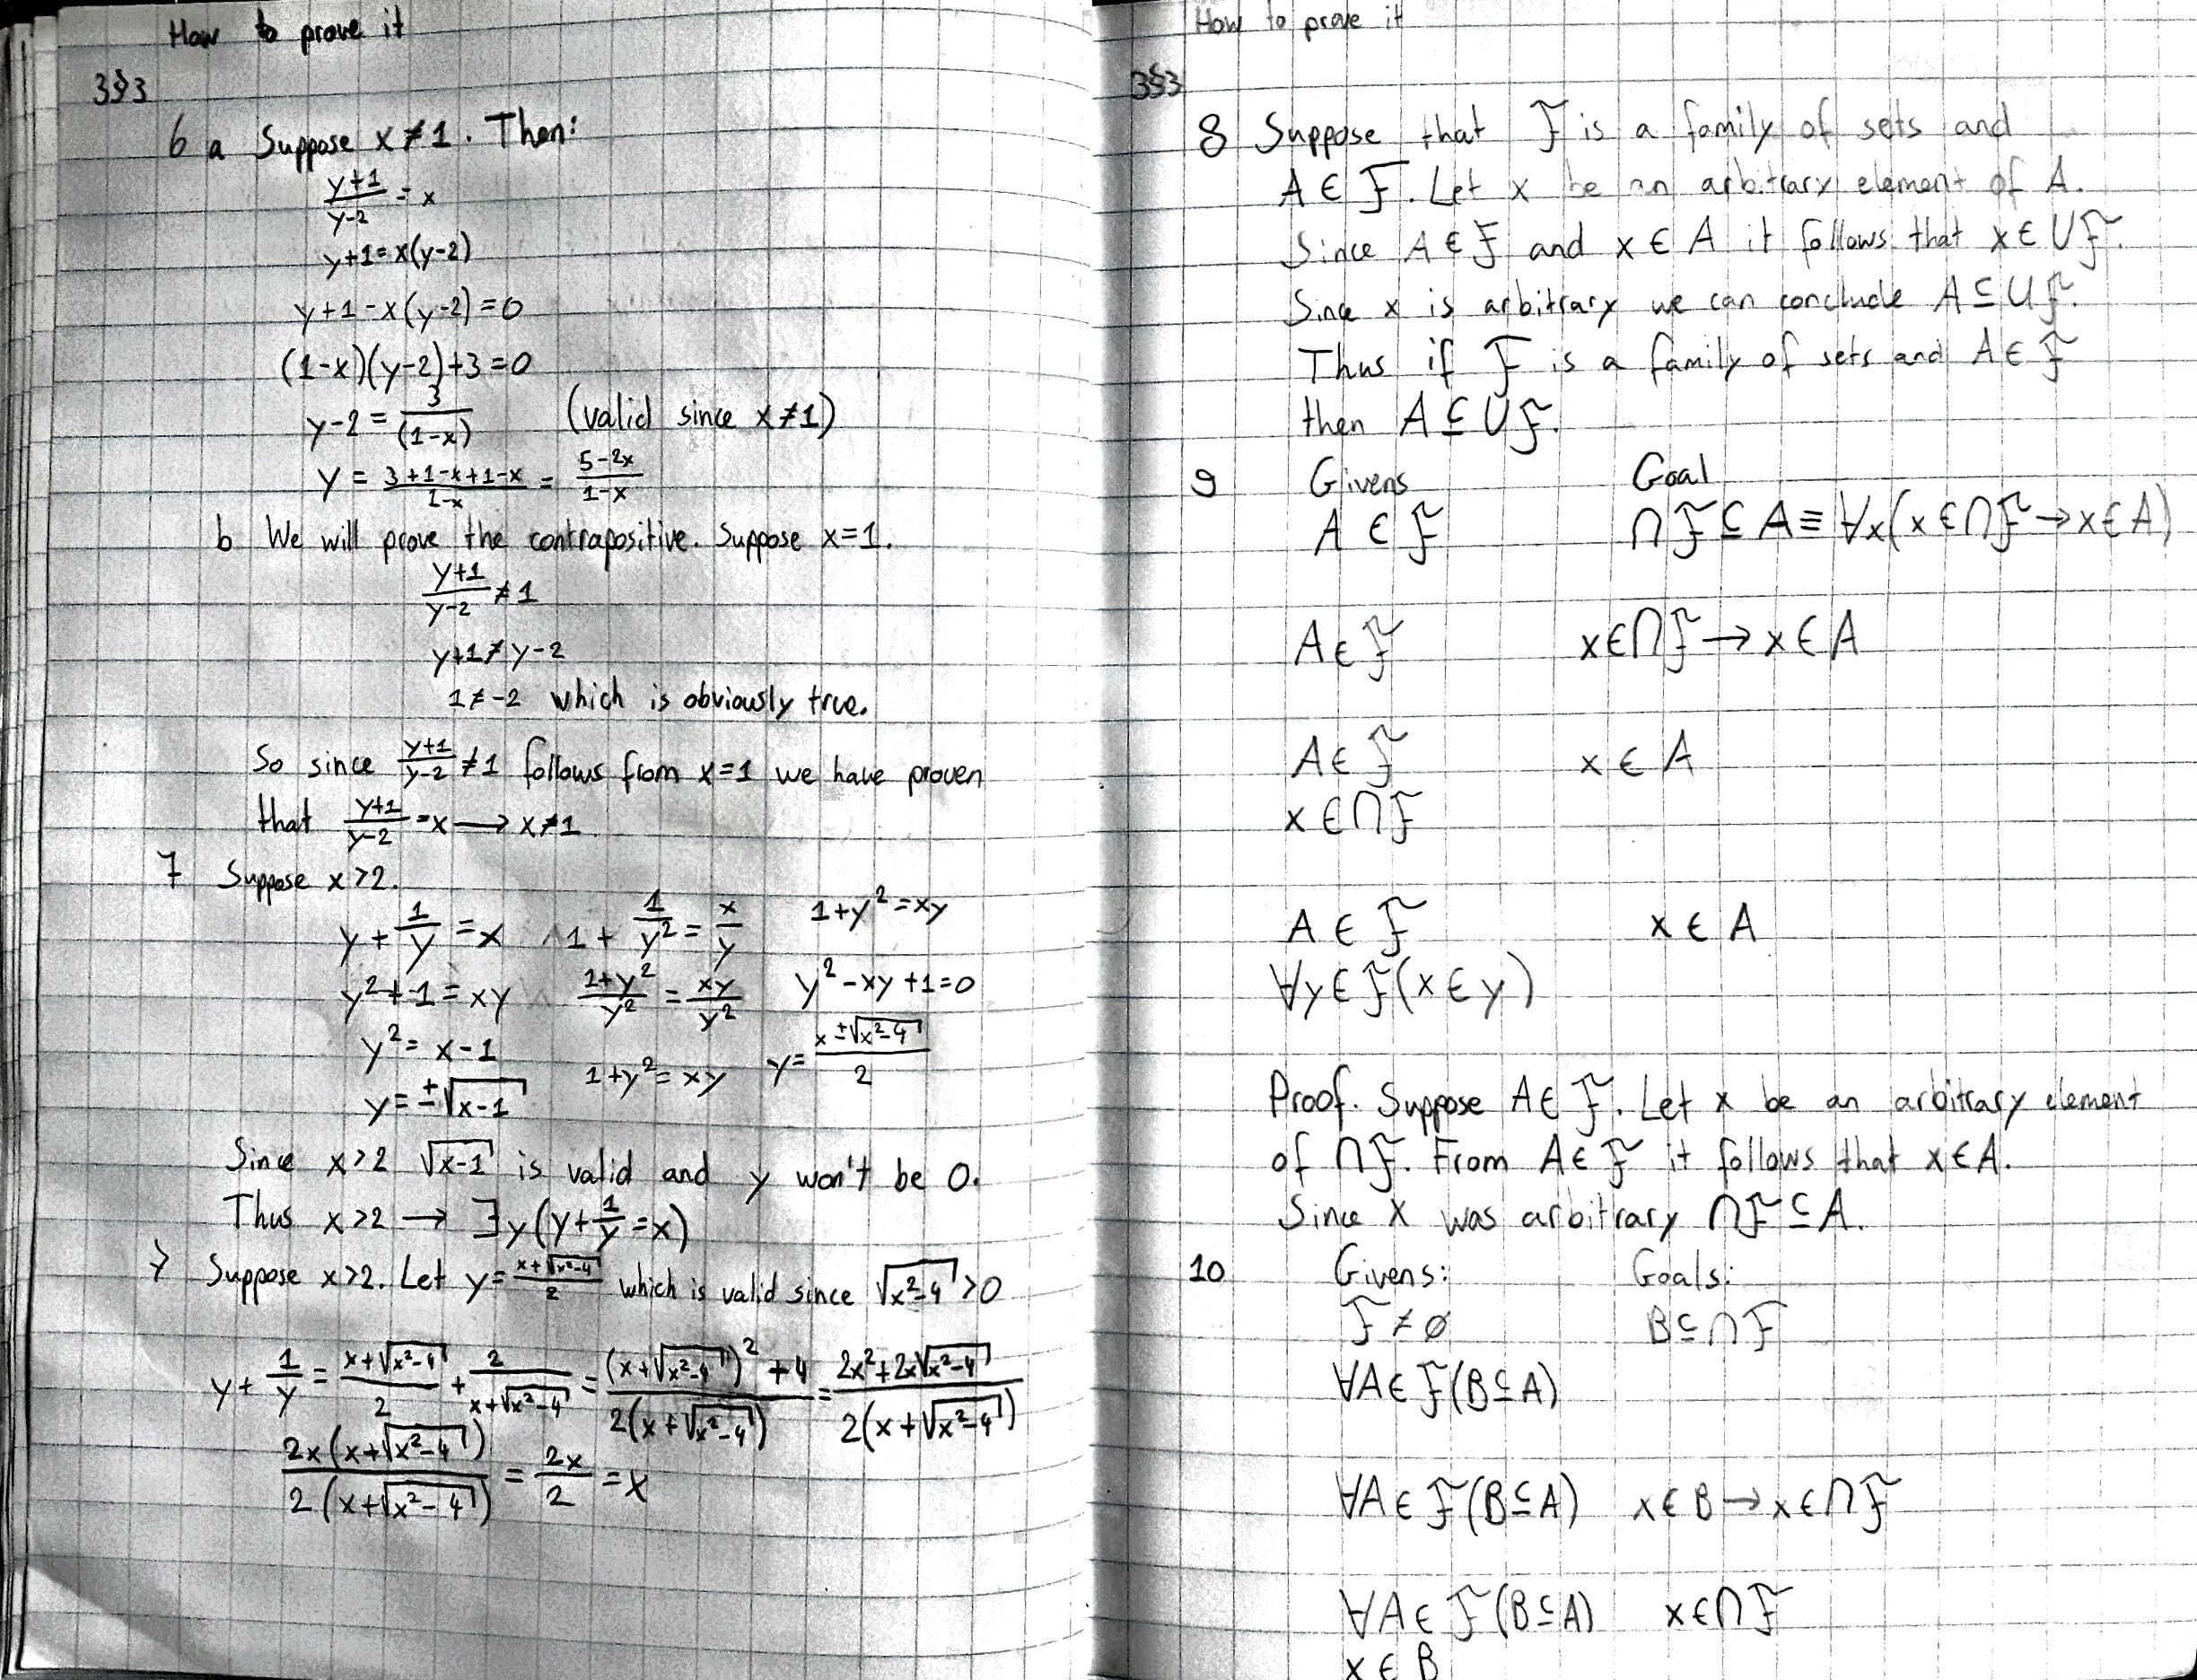 How to prove it
3§3
6 a Suppose x≠1. Then:
(y+1)/(y-2) = x
y+1=x(y-2)
y+1-x(y-2)=0
(1-x)(y-2)+3=0
y-2 = 3/(1-x) (valid since x≠1)
y = (3+1-x+1-x)/(1-x) = (5-2x)/(1-x)
b We will prove the contrapositive. Suppose x=1.
(y+1)/(y-2) ≠ 1
y+1≠y-2
1≠-2 which is obviously true.
So since (y+1)/(y-2) ≠1 follows from x=1 we have proven
that (y+1)/(y-2) = x → x≠1
7 Suppose x>2.
y + 1/y = x 1 + 1/y² = x/y 1+y²=xy
y²+1=xy (1+y²)/y² = xy/y² y²-xy+1=0
y² = x-1 1+y²=xy y= (x±√(x²-4))/2
y=±√(x-1)
Since x>2 √(x-1) is valid and y won't be 0.
Thus x>2 → ∃y(y+1/y=x)
7 Suppose x>2. Let y= (x+√(x²-4))/2 which is valid since √(x²-4) >0
y + 1/y = (x+√(x²-4))/2 + 2/(x+√(x²-4)) = ((x+√(x²-4))²+4)/(2(x+√(x²-4))) = (2x²+2x√(x²-4))/(2(x+√(x²-4)))
(2x(x+√(x²-4)))/(2(x+√(x²-4))) = 2x/2 = x
How to prove it
3§3
8 Suppose that ℱ is a family of sets and
A ∈ ℱ. Let x be an arbitrary element of A.
Since A ∈ ℱ and x ∈ A it follows that x ∈ ∪ℱ.
Since x is arbitrary we can conclude A ⊆ ∪ℱ.
Thus if ℱ is a family of sets and A ∈ ℱ
then A ⊆ ∪ℱ.
9 Givens Goal
A ∈ ℱ ∩ℱ ⊆ A ≡ ∀x(x∈∩ℱ → x∈A)
A ∈ ℱ x∈∩ℱ → x ∈ A
A ∈ ℱ x ∈ A
x ∈ ∩ℱ
A ∈ ℱ x ∈ A
∀y ∈ ℱ(x ∈ y)
Proof. Suppose A ∈ ℱ. Let x be an arbitrary element
of ∩ℱ. From A ∈ ℱ it follows that x ∈ A.
Since x was arbitrary ∩ℱ ⊆ A.
10 Givens: Goals:
ℱ ≠ ∅ B ⊆ ∩ℱ
∀A ∈ ℱ(B⊆A)
∀A ∈ ℱ(B⊆A) x ∈ B → x ∈ ∩ℱ
∀A ∈ ℱ(B⊆A) x ∈ ∩ℱ
x ∈ B